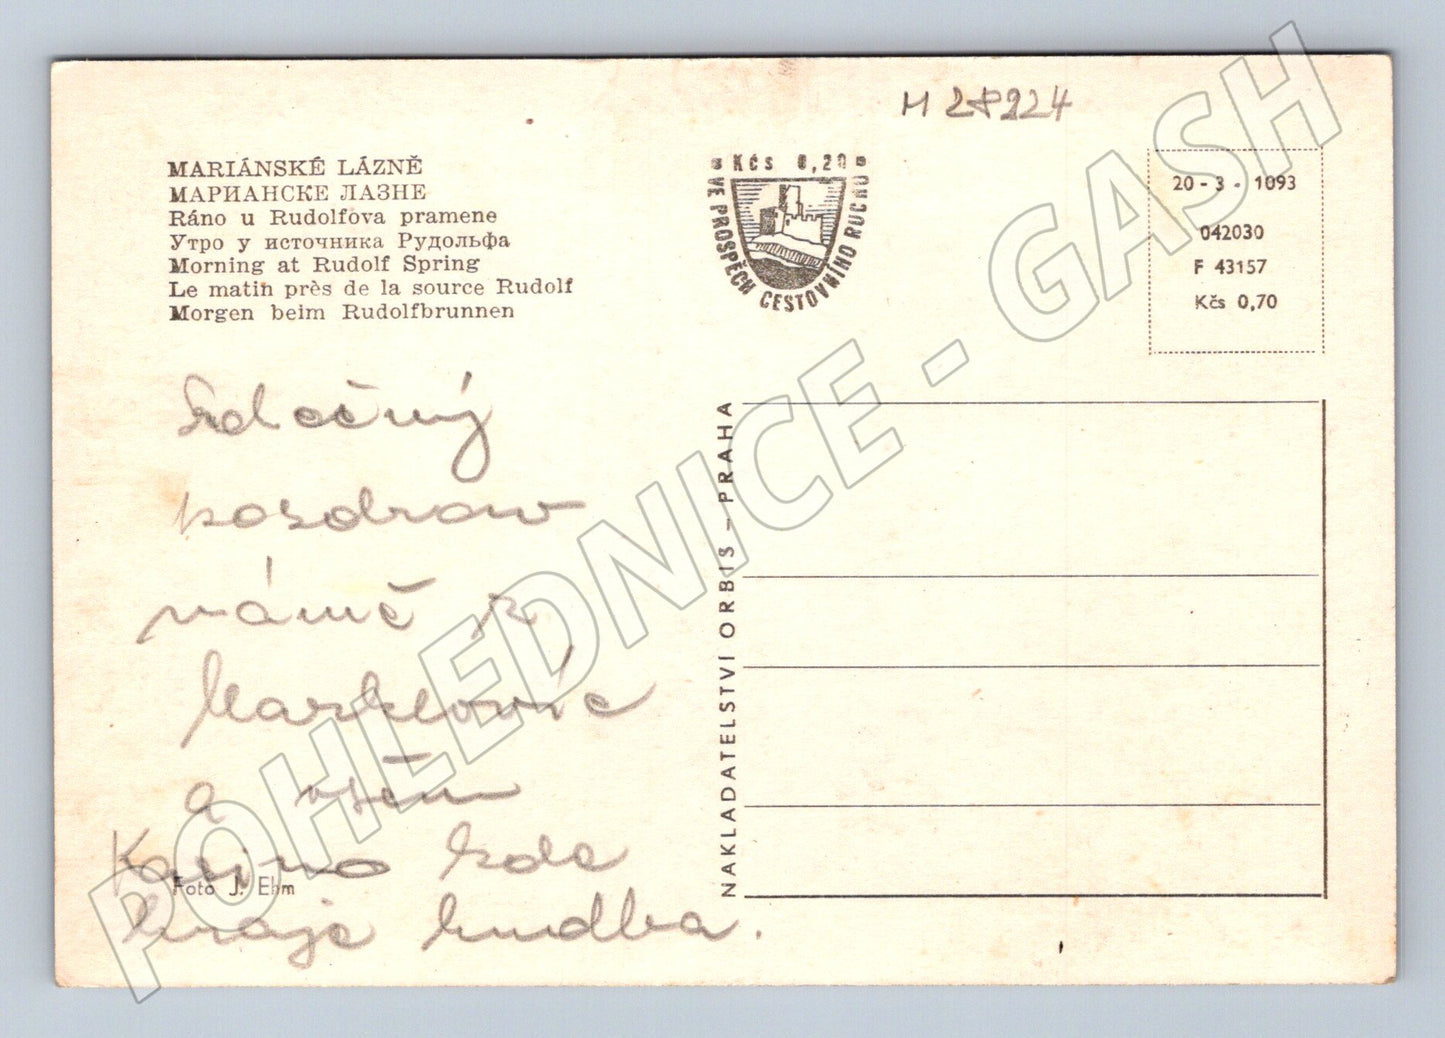 M 28224
MARIÁNSKÉ LÁZNĚ
МАРИАНСКЕ ЛАЗНЕ
Ráno u Rudolfova pramene
Утро у источника Рудольфа
Morning at Rudolf Spring
Le matin près de la source Rudolf
Morgen beim Rudolfbrunnen
Kčs 0,20
VE PROSPĚCH CESTOVNÍHO RUCHU
20 - 3 - 1093
042030
F 43157
Kčs 0,70
Srdečný
pozdrav
z
a všem
Kasino kde
hraje hudba.
Foto J. Ehm
NAKLADATELSTVÍ ORBIS - PRAHA
POHLEDNICE - GASH